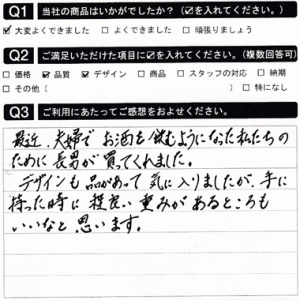 Q1 当社の商品はいかがでしたか？（☑を入れてください。）
☑ 大変よくできました □ よくできました □ 頑張りましょう
Q2 ご満足いただけた項目に☑を入れてください。（複数回答可）
□ 価格 ☑ 品質 ☑ デザイン □ 商品 □ スタッフの対応 □ 納期
□ その他（ ）□ 特になし
Q3 ご利用にあたってご感想をおよせください。
最近、夫婦でお酒を飲むようになった私たちの
ために長男が買ってくれました。
デザインも品があって気に入りましたが、手に
持った時に程良い重みがあるところも
いいなと思います。